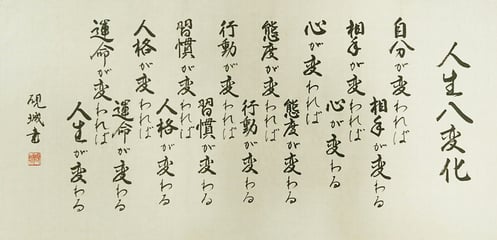 人生八変化
自分が変われば
相手が変わる
相手が変われば
心が変わる
心が変われば
態度が変わる
態度が変われば
行動が変わる
行動が変われば
習慣が変わる
習慣が変われば
人格が変わる
人格が変われば
運命が変わる
運命が変われば
人生が変わる
硯城書